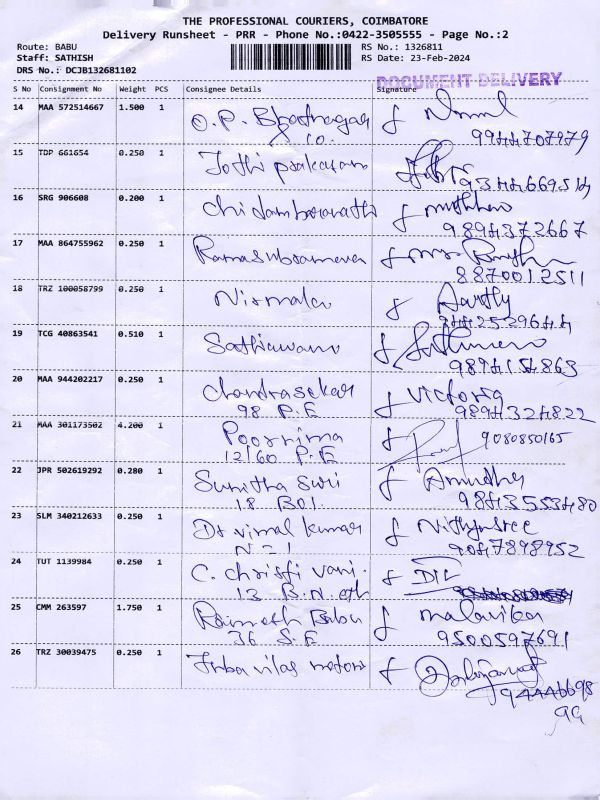 THE PROFESSIONAL COURIERS, COIMBATORE
Delivery Runsheet - PRR - Phone No.:0422-3505555 - Page No.:2
Route: BABU RS No.: 1326811
Staff: SATHISH RS Date: 23-Feb-2024
DRS No.: DCJB132681102
DOCUMENT DELIVERY
S No Consignment No Weight PCS Consignee Details Signature
14 MAA 572514667 1.500 1 O.P. Bhatnagar
& co.
15 TDP 661654 0.250 1 Jothi prakasam
16 SRG 906608 0.200 1 Chidambaranathi
9894372667
17 MAA 864755962 0.250 1
8870012511
18 TRZ 100058799 0.250 1 Nirmala Aarthy
19 TCG 40863541 0.510 1
9894154863
20 MAA 944202217 0.250 1 Chandrasekar Victoria
98 P.E 9894324822
21 MAA 301173502 4.200 1 Poornima 9080850165
12/60 P.E
22 JPR 502619292 0.280 1 Sunitha Suri Anudha
18 B01 9843553480
23 SLM 340212633 0.250 1 Dr vimal kumar Nithyasree
N21 9047898952
24 TUT 1139984 0.250 1 C. chrisfi vani.
13 B.N. eth
25 CMM 263597 1.750 1 Ramesh Babu malavika
36 S.E 9500597691
26 TRZ 30039475 0.250 1 vilas motors